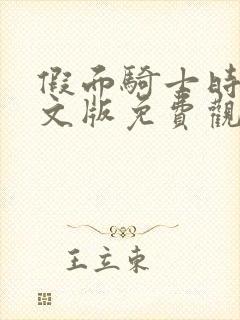 假面騎士時
文版免費觀
王立東